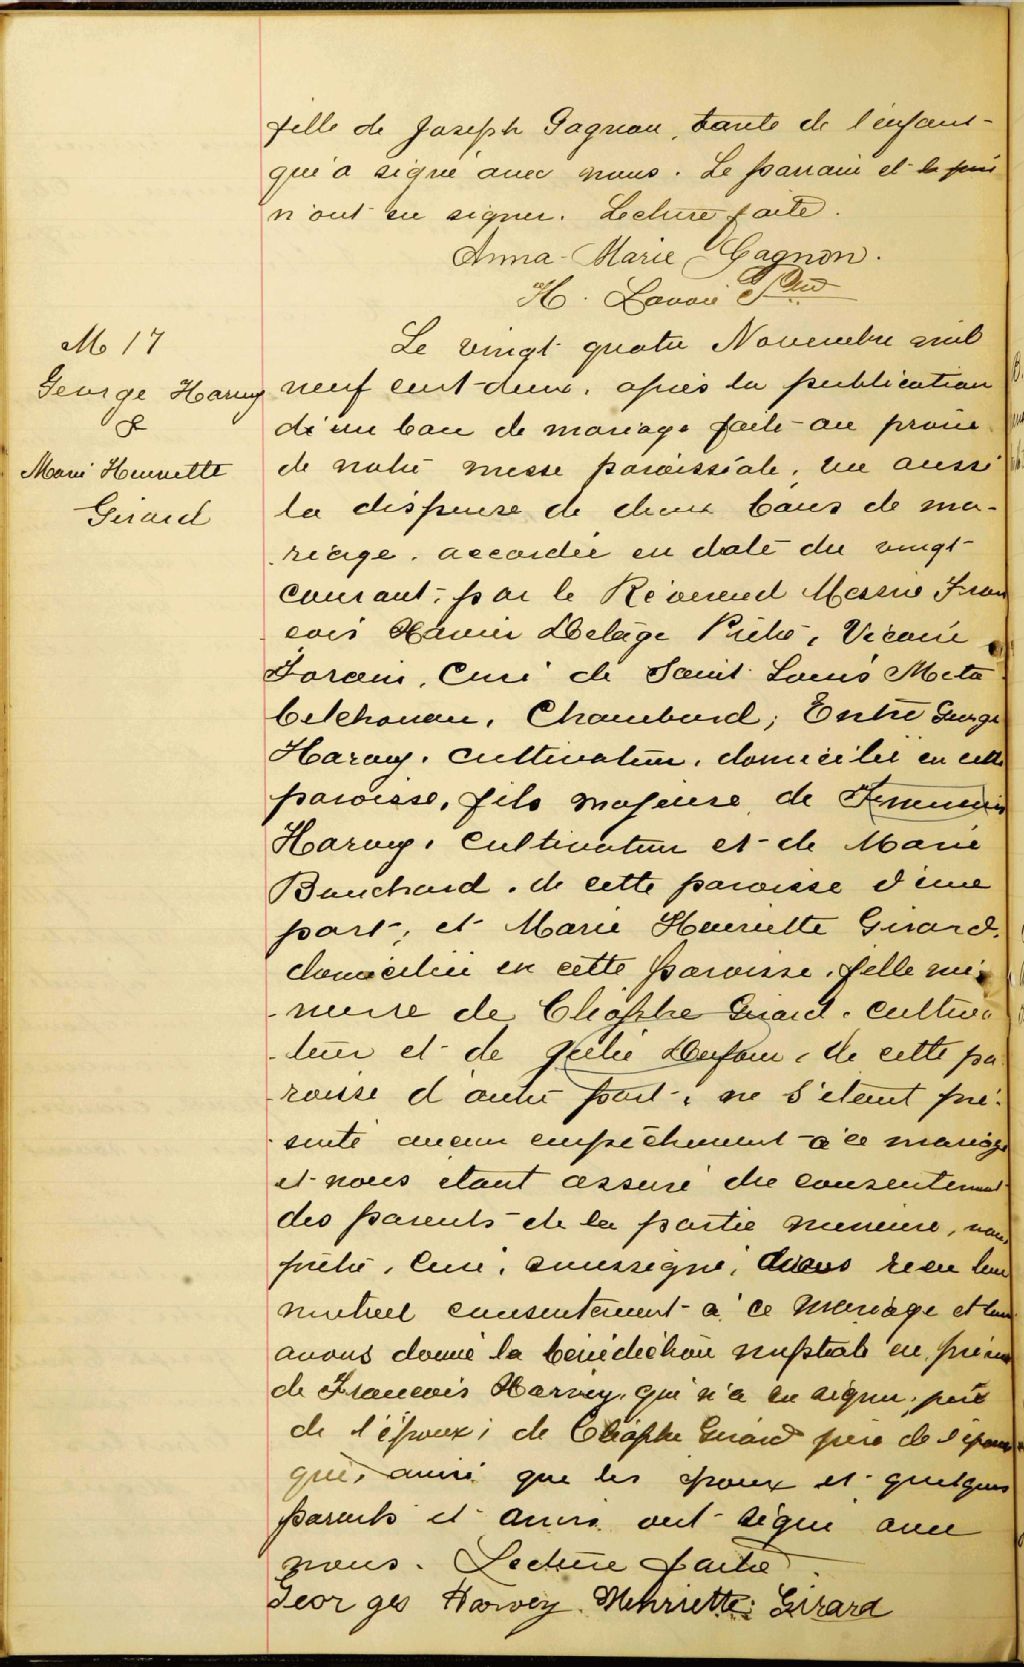 fille de Joseph Gagnon, tante de l'enfant
qui a signé avec nous. Le parrain et le père
n'ont su signer. Lecture faite.
Anna-Marie Gagnon.
H. Lavoie Ptre
M 17
George Harvey
&
Marie Henriette
Girard
Le vingt quatre Novembre mil
neuf cent-deux, après la publication
d'un ban de mariage faite au prône
de notre messe paroissiale, vu aussi
la dispense de deux bans de ma-
riage, accordée en date du vingt
courant, par le Révérend Messire Fran
cois Xavier Delâge Prêtre, Vicaire
Forain, Curé de Saint Louis Meta
betchouan, Chambord; Entre George
Harvey, cultivateur, domicilié en cette
paroisse, fils majeure de
Harvey, cultivateur et de Marie
Bouchard, de cette paroisse d'une
part, et Marie Henriette Girard,
domiciliée en cette paroisse, fille mi-
neure de Cléophe Girard, cultiva
teur et de Julie Dufour, de cette pa
roisse d'autre part, ne s'étant pré-
senté aucun empêchement à ce mariage
et nous étant assuré du consentement
des parents de la partie mineure, nous
prêtre, curé, soussigné, avons recu leur
mutuel consentement à ce mariage et leur
avons donné la bénédiction nuptiale en présence
de Francois Harvey, qui n'a su signer, père
de l'époux; de Cléophe Girard père de l'épouse
qui, ainsi que les époux et quelques
parents et amis ont signé avec
nous. Lecture faite.
Georges Harvey. Henriette Girard